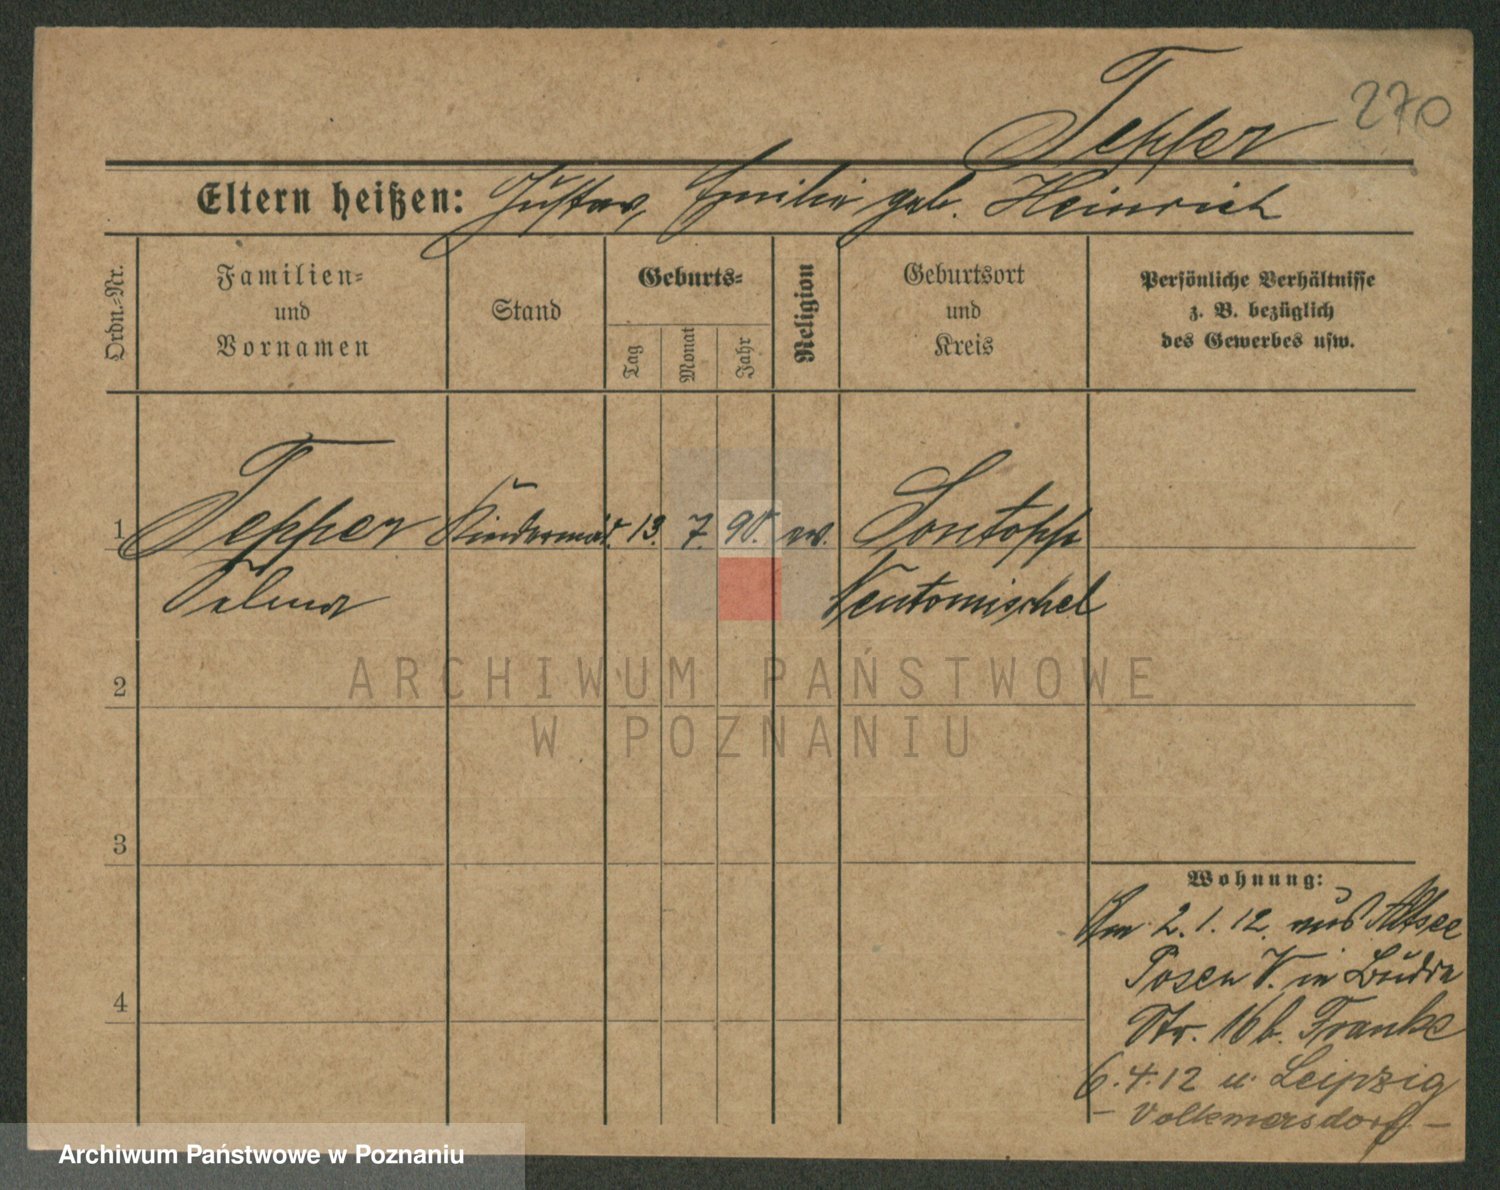 270
Tepper
Eltern heißen: Gustav, Emilie geb. Heinrich
Ordn.-Nr.
Familien-
und
Vornamen
Stand
Geburts-
Tag
Monat
Jahr
Religion
Geburtsort
und
Kreis
Persönliche Verhältnisse
z. B. bezüglich
des Gewerbes usw.
1 Tepper Kindermäd. 13. 7. 90. ev. Sontopp
Selma Neutomischel
2
3
4
Wohnung:
Am 2. 1. 12. aus Altsee
Posen V. in
Str. 16 b. Franke
6.4.12 u. Leipzig
- Volkmarsdorf -
ARCHIWUM PAŃSTWOWE
W POZNANIU
Archiwum Państwowe w Poznaniu